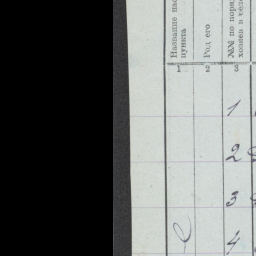 Название нас
пункта
Род его
№№ по поряд
хозяев в
1 2 3
1
2
3
4